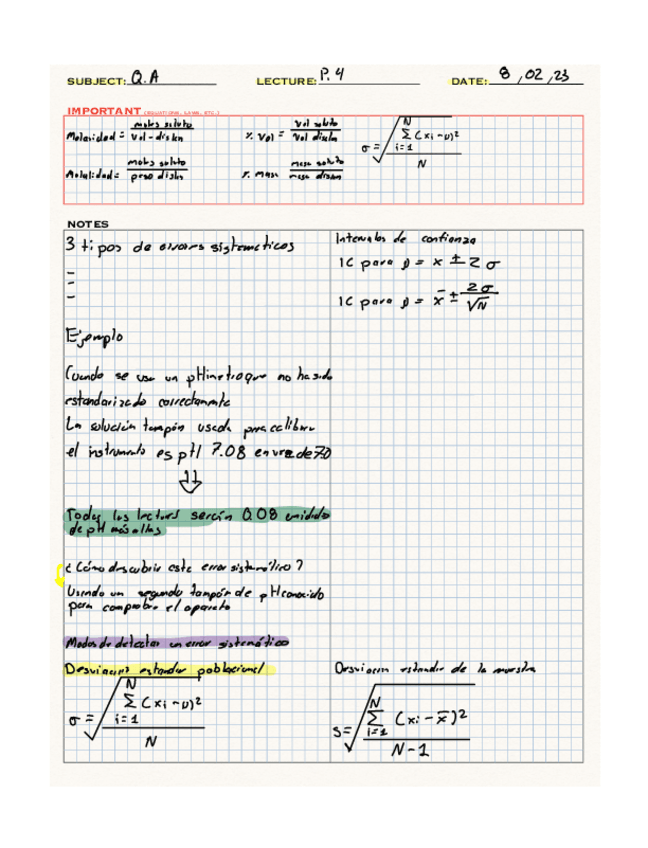 SUBJECT: Q.A LECTURE: P.4 DATE: 8,02,23
IMPORTANT (EQUATIONS, LAWS, ETC.)
Molaridad = moles soluto / Vol-disln
% Vol = Vol soluto / Vol disln
σ = √ N Σ i=1 (xi-υ)² / N
Molalidad = moles soluto / peso disln
%. masa = masa soluto / masa disln
NOTES
3 tipos de errores sistematicos
-
-
-
Ejemplo
Cuando se usa un pHimetro que no ha sido
estandarizado correctamente
La solución tampón usada para calibrar
el instrumento es pH 7.08 en vez de 7.0
⇓
Todas las lecturas serán 0.08 unidades
de pH más altas
¿Cómo descubrir este error sistemático?
Usando un segundo tampón de pH conocido
para comprobar el aparato
Modos de detectar un error sistemático
Desviacion estandar poblacional
σ = √ N Σ i=1 (xi-υ)² / N
Intervalos de confianza
IC para υ = x ± 2σ
IC para υ = x̄ ± 2σ / √N
Desviacion estandar de la muestra
S = √ N Σ i=1 (xi-x̄)² / N-1